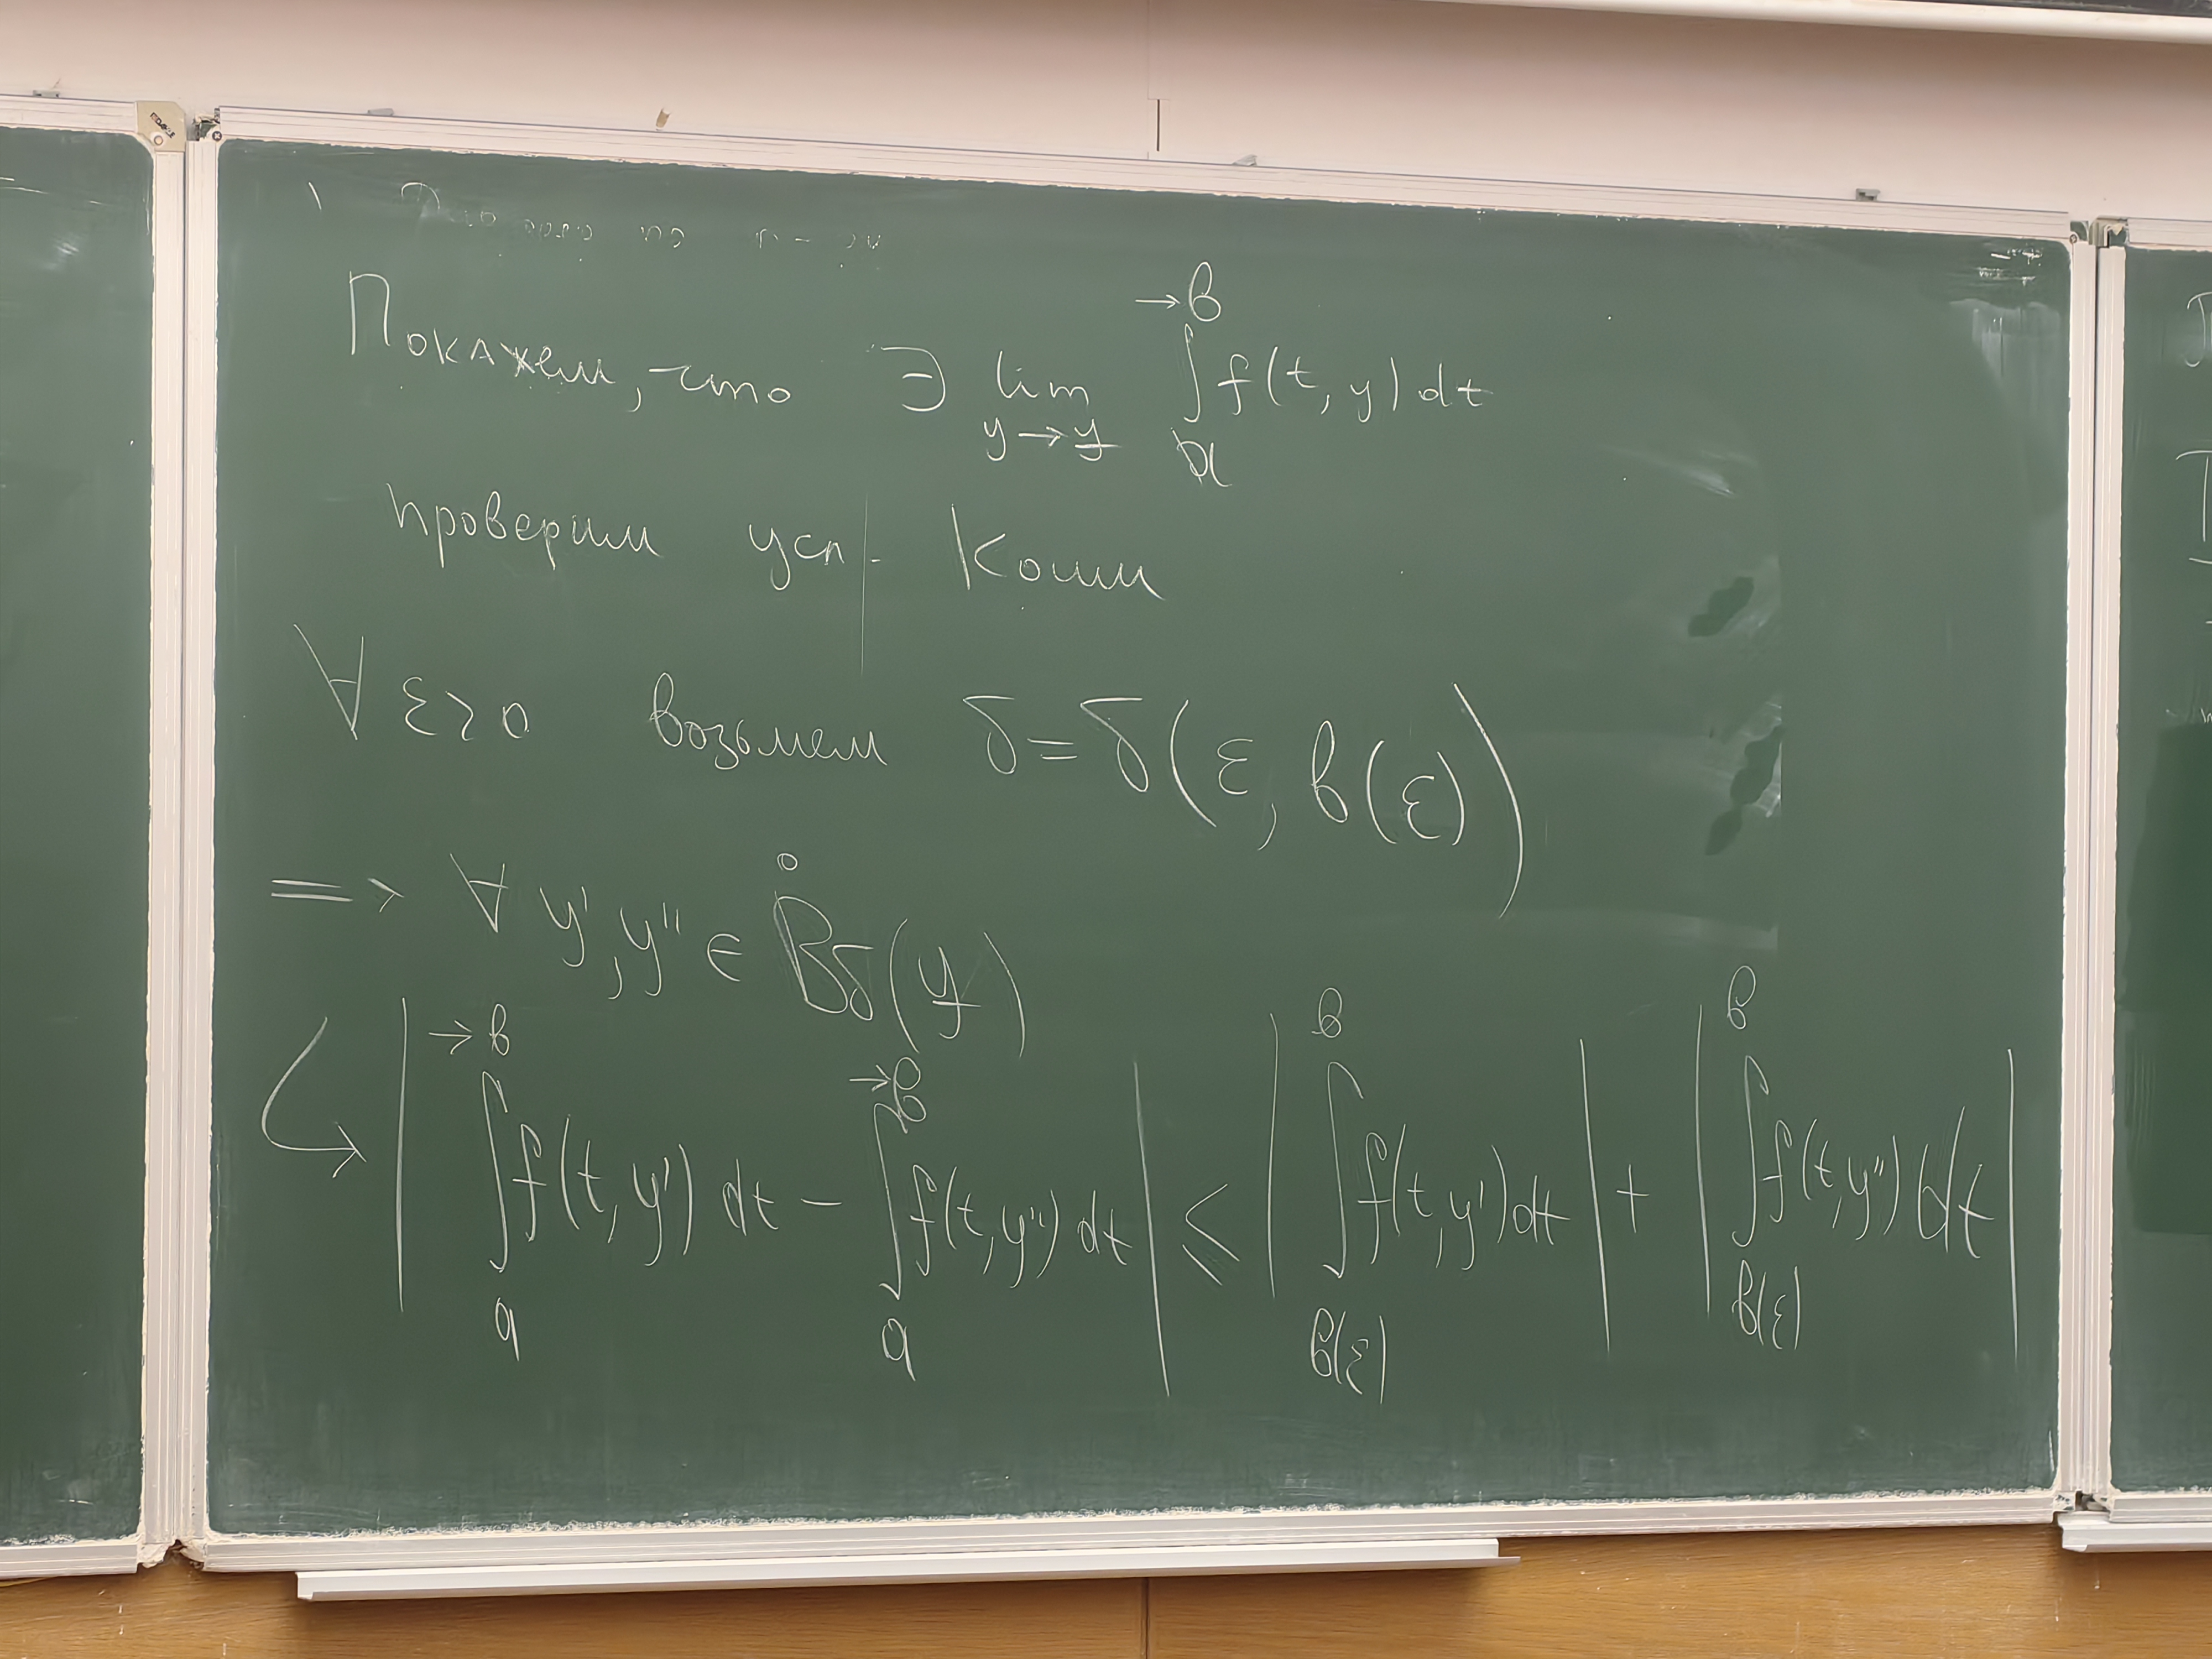 Покажем, что ∃ lim_{y→y̲} ∫_a^{→в} f(t, y) dt
проверим усл. Коши
∀ ε>0 возьмем δ=δ(ε, в(ε))
=> ∀ y', y'' ∈ B̊_δ(y̲)
↪ | ∫_a^{→в} f(t, y') dt − ∫_a^{→в} f(t, y'') dt | ≤ | ∫_{в(ε)}^{в} f(t, y') dt | + | ∫_{в(ε)}^{в} f(t, y'') dt |